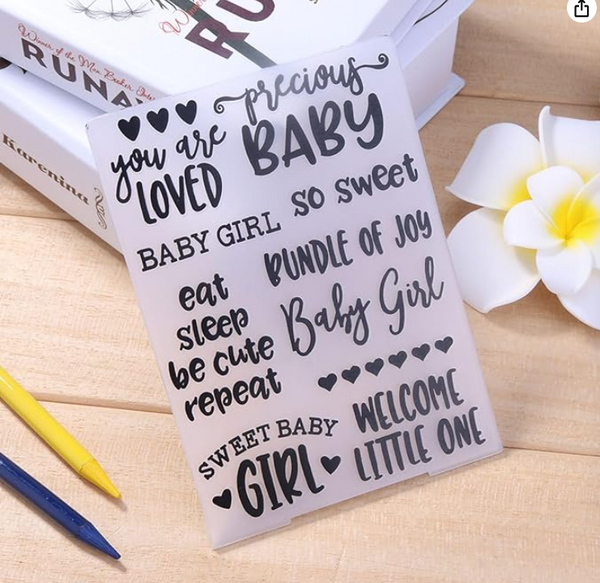 Winner of the Man Booker
RUNA
RU
Karenina
you are
LOVED
precious
BABY
so sweet
BABY GIRL
BUNDLE OF JOY
eat
sleep
be cute
repeat
Baby Girl
WELCOME
LITTLE ONE
SWEET BABY
GIRL